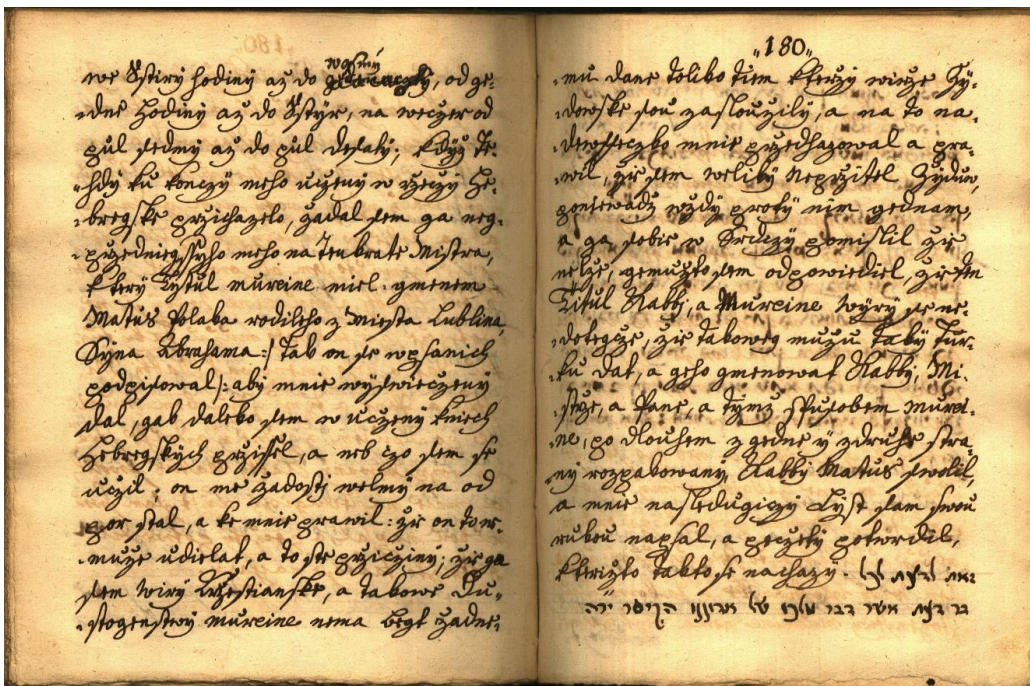 we Sstiry hodiny až do
wosmy
, od ge-
dne hodiny až do Sstyr, na weczer od
pul sedmy až do pul desaty; kdyż te-
hdy ku konczy meho učeny w rzeczy He-
bregske przichazelo, żadal sem ga neg-
przednieyssyho meho na ten krate Mistra,
ktery Tytul mureine miel. gmenem
Matus Polaka rodileho z miesta Lublina,
Syna Abrahama :/ Tak on se w psanich
podpisowal /: aby mnie wyswieczeny
dal, gak daleko sem w uczeny knich
Hebregskych przissel, a neb czo sem se
uczil; on me żadosti welmy na od
por stal, a ke mnie prawil: że on to ne-
muże udielat, a to ste prziczyny; że ga
sem wiry Krzestianske, a takowe Du-
stogenstwy mureine nema beyt żadne-
180
mu dane toliko tiem kterzy wirże Ży-
dowske sou zasloużily, a na to na-
dewsseczko mnie przedhazowal a pra-
wil, że sem weliky Neprzitel Żyduw,
poniewadż wżdy proty nim gednam,
a ga sobie w Srdczy pomislil że
nelże, gemużto sem odpowiediel, że ten
Titul Rabby, a Mureine Wyry se ne-
dotegcze, że takoweg mużu taky Tur-
ku dat, a geho gmenowat Rabby, Mi-
strże, a Pane, a tymż spusobem murei-
ne, po dlouhem z gedne y z druhe stra-
ny rozpakowany, Rabby Matus swolil,
a mnie nasledugiczy Lyst sam swou
rukou napsal, a peczety potwrdil,
kterżito takto se nachazy. זאת לדעת לכל
בני דעת אשר דבר מלכו של אדוננו הקיסר יר״ה